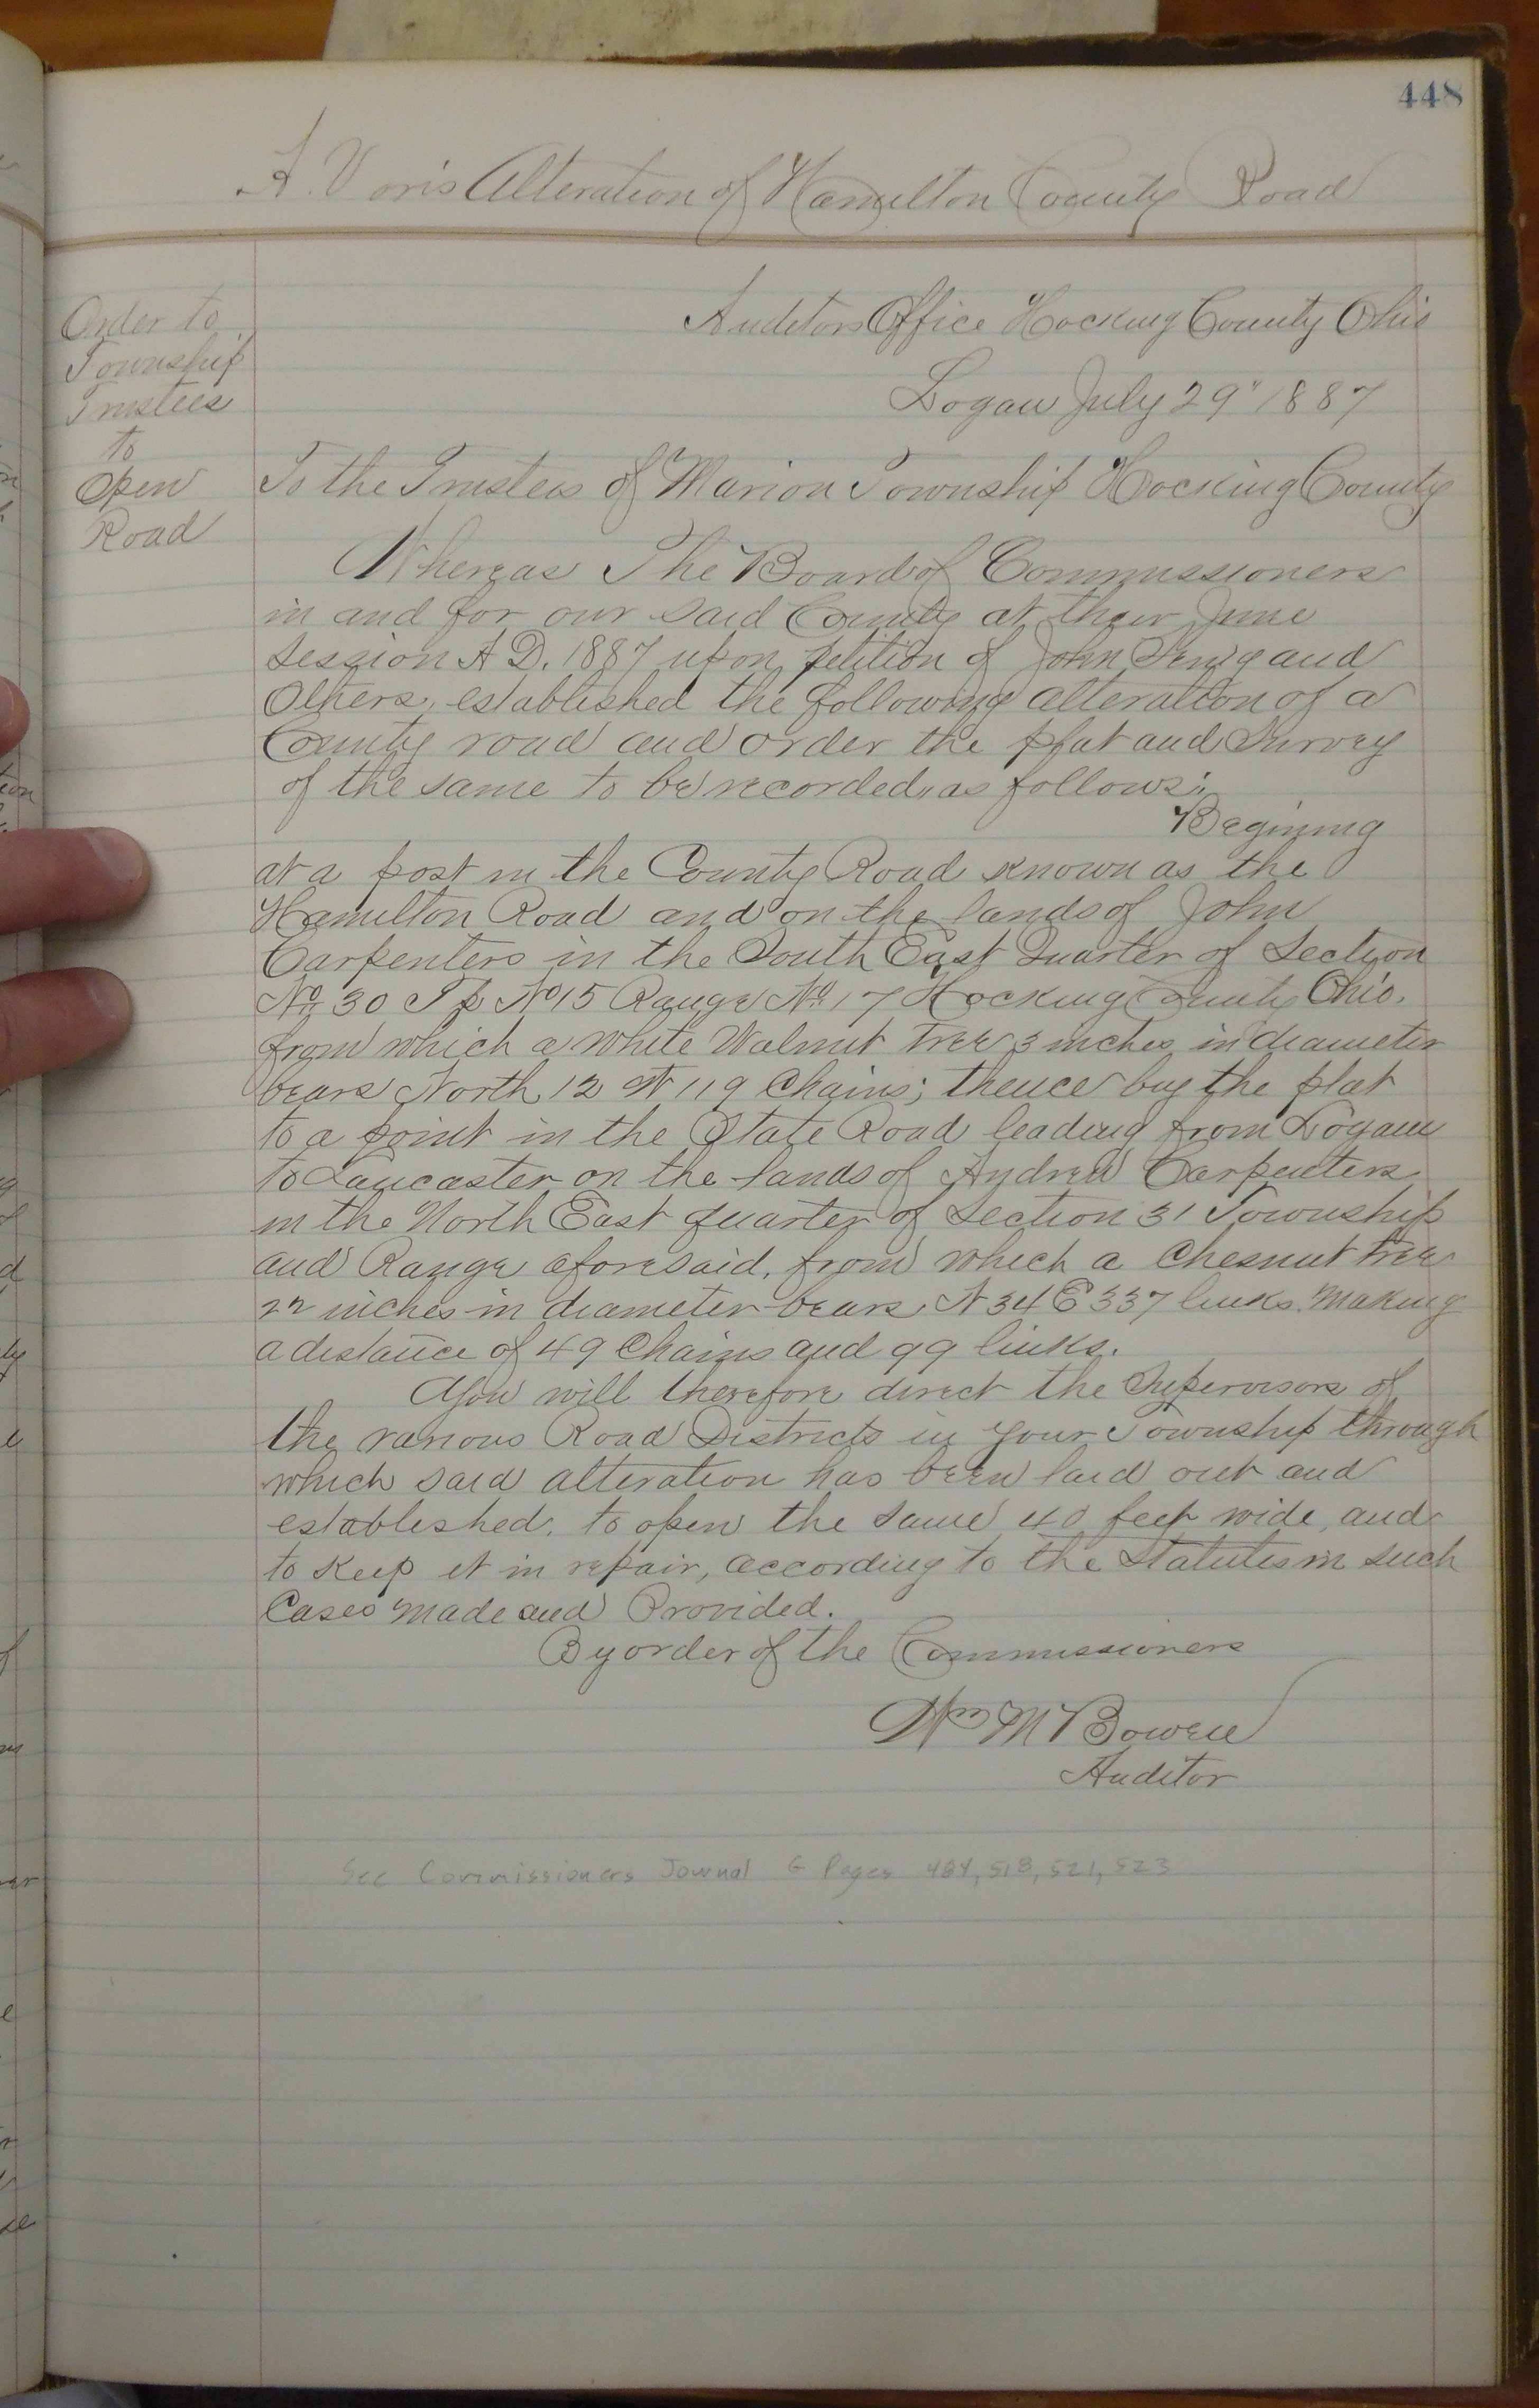 448
A. Voris Alteration of Hamilton County Road
Order to
Township
Trustees
to
Open
Road
Auditors Office Hocking County Ohio
Logan July 29" 1887
To the Trustees of Marion Township Hocking County
Whereas The Board of Commissioners
in and for our said County at their June
Session A D. 1887 upon petition of John and
Others, established the following alteration of a
County road and order the plat and Survey
of the same to be recorded, as follows:
Begining
at a post in the County Road known as the
Hamilton Road and on the lands of John
Carpenters in the South East Quarter of Section
No 30 Tp No 15 Range No 17 Hocking County Ohio.
from which a White Walnut tree 3 inches in diameter
bears North 12 W 119 Chains; thence by the plat
to a point in the State Road leading from Logan
to Lancaster on the lands of Andrew Carpenters
in the North East quarter of Section 31 Township
and Range aforesaid, from which a Chesnut tree
22 inches in diameter bears N 34 E 337 links. Making
a distance of 49 Chains and 99 links.
You will therefore direct the Supervisors of
the various Road Districts in your Township through
which said alteration has been laid out and
established, to open the same 40 feet wide, and
to Keep it in repair, according to the Statutes in such
Cases made and Provided.
By order of the Commissioners
Wm M Bowen
Auditor
See Commissioners Journal G Pages 484, 518, 521, 523